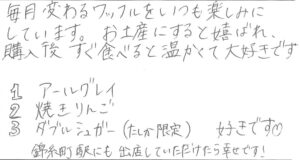 毎月変わるワッフルをいつも楽しみに
しています。 お土産にすると嬉ばれ、
購入後 すぐ食べると温かくて大好きです
1 アールグレイ
2 焼きりんご
3 ダブルシュガー(たしか限定) 好きです♡
錦糸町駅にも出店していただけたら幸せです!